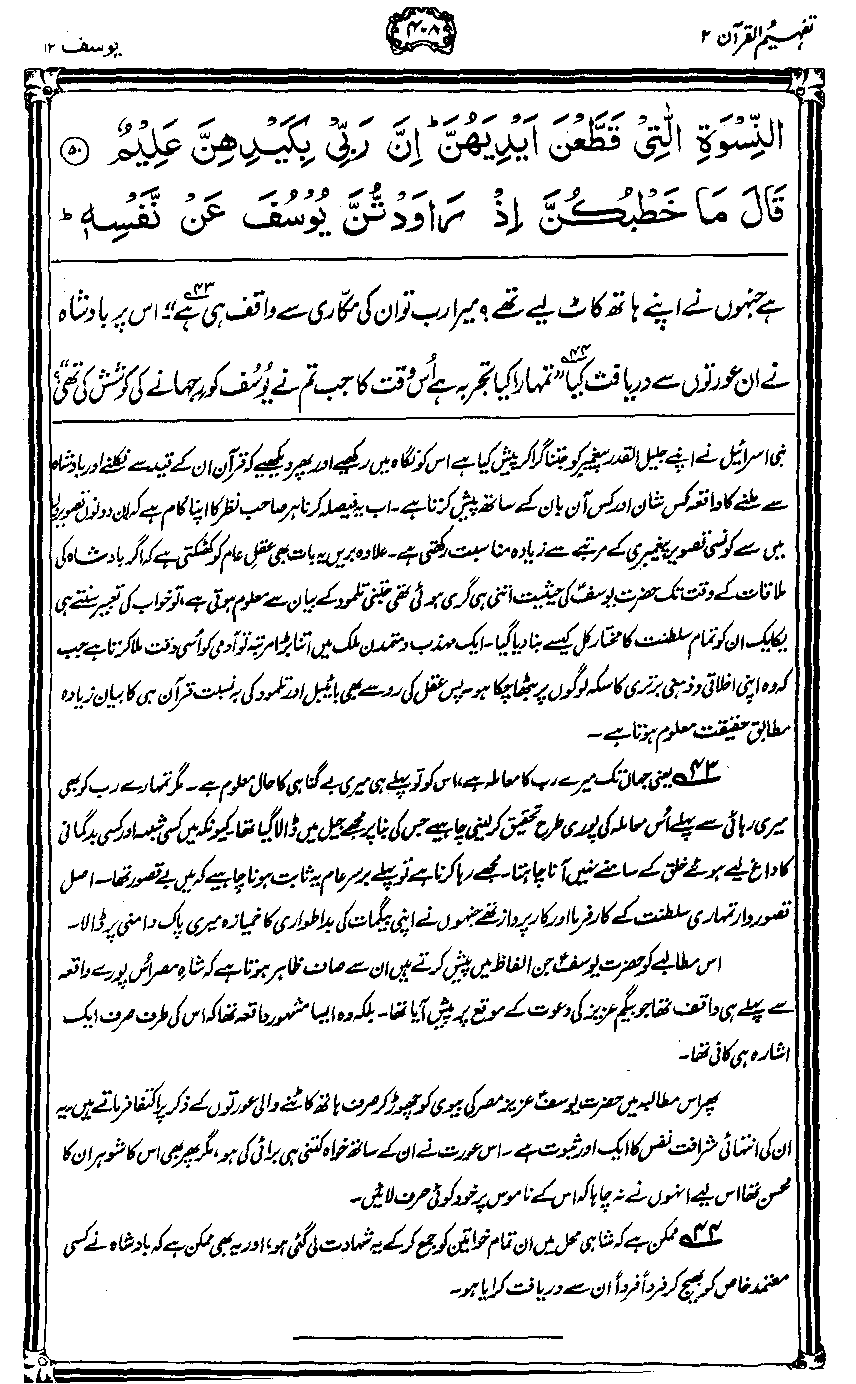 تفہیم القرآن ۲
۴۰۸
یوسف ۱۲
النِّسْوَةِ الّٰتِیْ قَطَّعْنَ اَیْدِیَهُنَّ ؕ اِنَّ رَبِّیْ بِكَیْدِهِنَّ عَلِیْمٌ ۝۵۰
قَالَ مَا خَطْبُكُنَّ اِذْ رَاوَدْتُّنَّ یُوْسُفَ عَنْ نَّفْسِهٖ ؕ
ہے جنہوں نے اپنے ہاتھ کاٹ لیے تھے؟ میرا رب تو ان کی مکاری سے واقف ہی ہے"۴۳ اس پر بادشاہ
نے ان عورتوں سے دریافت کیا۴۴ "تمہارا کیا تجربہ ہے اُس وقت کا جب تم نے یُوسُف کو رِجھانے کی کوشش کی تھی؟"
بنی اسرائیل نے اپنے جلیل القدر پیغمبر کو جتنا گرا کر پیش کیا ہے اس کو نگاہ میں رکھیے اور پھر دیکھیے کہ قرآن ان کے قید سے نکلنے اور بادشاہ
سے ملنے کا واقعہ کس شان اور کس آن بان کے ساتھ پیش کرتا ہے۔ اب یہ فیصلہ کرنا ہر صاحب نظر کا اپنا کام ہے کہ ان دونوں تصویروں
میں سے کونسی تصویر پیغمبری کے مرتبے سے زیادہ مناسبت رکھتی ہے۔ علاوہ بریں یہ بات بھی عقلِ عام کو کھٹکتی ہے کہ اگر بادشاہ کی
ملاقات کے وقت تک حضرت یوسفؑ کی حیثیت اتنی ہی گری ہوئی تھی جتنی تلمود کے بیان سے معلوم ہوتی ہے، تو خواب کی تعبیر سنتے ہی
یکایک ان کو تمام سلطنت کا مختارِ کل کیسے بنا دیا گیا۔ ایک مہذب و متمدن ملک میں اتنا بڑا مرتبہ تو آدمی کو اُسی وقت ملا کرتا ہے جب
کہ وہ اپنی اخلاقی و ذہنی برتری کا سکہ لوگوں پر بٹھا چکا ہو۔ پس عقل کی رو سے بھی بائیبل اور تلمود کی بہ نسبت قرآن ہی کا بیان زیادہ
مطابق حقیقت معلوم ہوتا ہے۔
۴۳ یعنی جہاں تک میرے رب کا معاملہ ہے، اس کو تو پہلے ہی میری بے گناہی کا حال معلوم ہے۔ مگر تمہارے رب کو بھی
میری رہائی سے پہلے اُس معاملہ کی پوری طرح تحقیق کر لینی چاہیے جس کی بنا پر مجھے جیل میں ڈالا گیا تھا۔ کیونکہ میں کسی شبہہ اور کسی بدگمانی
کا داغ لیے ہوئے خلق کے سامنے نہیں آنا چاہتا۔ مجھے رہا کرنا ہے تو پہلے برسرِ عام یہ ثابت ہونا چاہیے کہ میں بے قصور تھا۔ اصل
قصوردار تمہاری سلطنت کے کارفرما اور کارپرداز تھے جنہوں نے اپنی بیگمات کی بداطواری کا خمیازہ میری پاک دامنی پر ڈالا۔
اس مطالبے کو حضرت یوسفؑ جن الفاظ میں پیش کرتے ہیں ان سے صاف ظاہر ہوتا ہے کہ شاہِ مصر اُس پورے واقعہ
سے پہلے ہی واقف تھا جو بیگم عزیز کی دعوت کے موقع پر پیش آیا تھا۔ بلکہ وہ ایسا مشہور واقعہ تھا کہ اس کی طرف صرف ایک
اشارہ ہی کافی تھا۔
پھر اس مطالبہ میں حضرت یوسفؑ عزیز مصر کی بیوی کو چھوڑ کر صرف ہاتھ کاٹنے والی عورتوں کے ذکر پر اکتفا فرماتے ہیں۔ یہ
ان کی انتہائی شرافت نفس کا ایک اور ثبوت ہے۔ اس عورت نے ان کے ساتھ خواہ کتنی ہی برائی کی ہو، مگر پھر بھی اس کا شوہر ان کا
محسن تھا اس لیے انہوں نے نہ چاہا کہ اس کے ناموس پر خود کوئی حرف لائیں۔
۴۴ ممکن ہے کہ شاہی محل میں ان تمام خواتین کو جمع کر کے یہ شہادت لی گئی ہو، اور یہ بھی ممکن ہے کہ بادشاہ نے کسی
معتمدِ خاص کو بھیج کر فرداً فرداً ان سے دریافت کرایا ہو۔